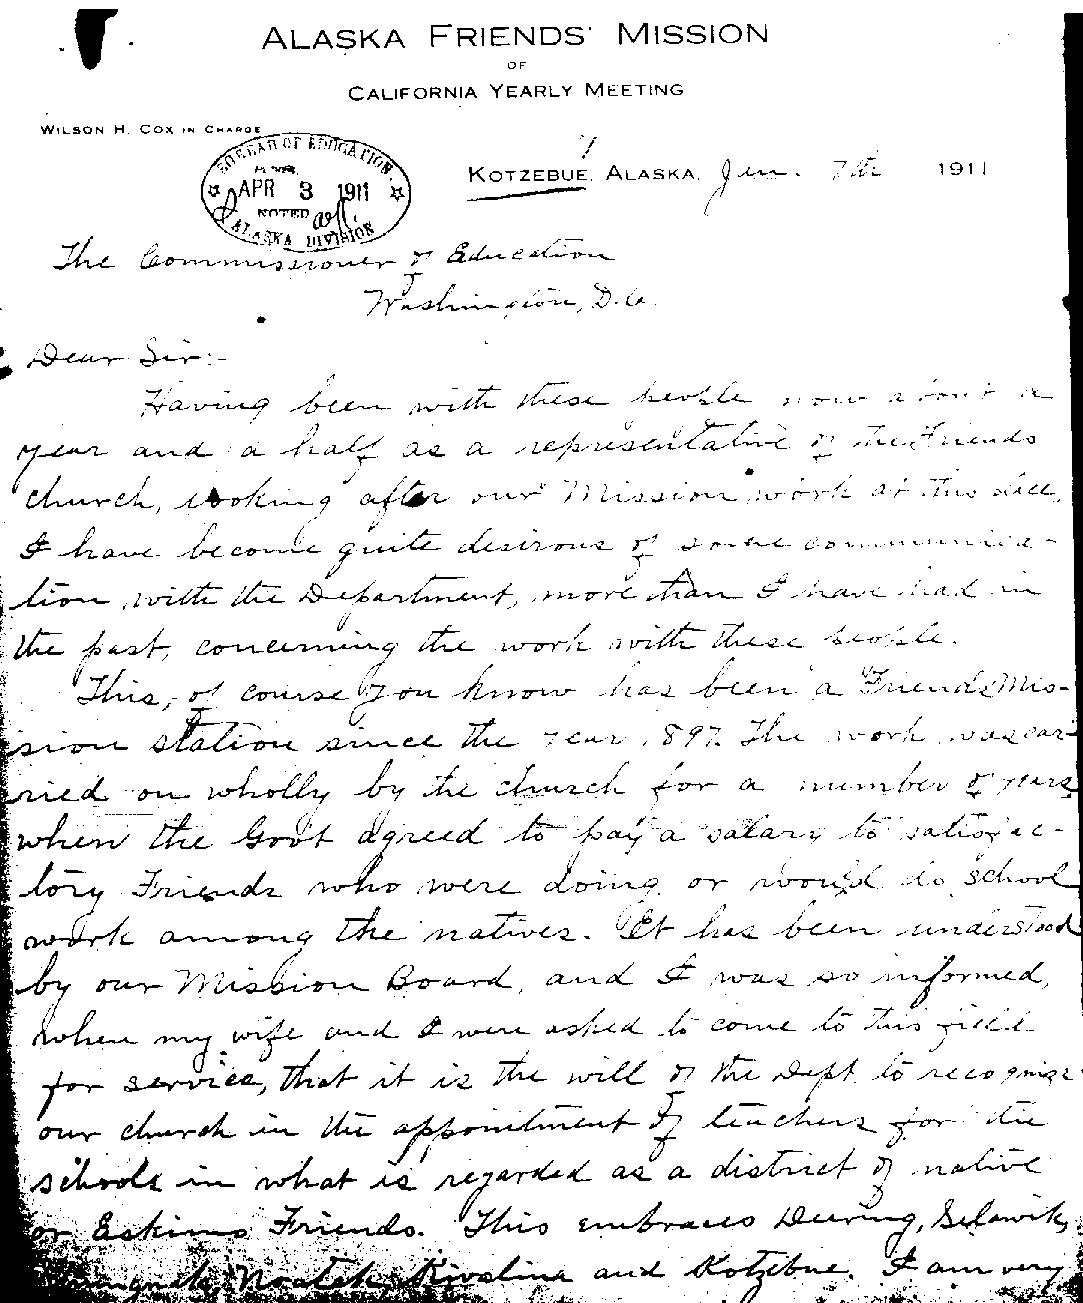 ALASKA FRIENDS' MISSION
OF
CALIFORNIA YEARLY MEETING
WILSON H. COX IN CHARGE
BUREAU OF EDUCATION.
APR 3 1911
NOTED
ALASKA DIVISION
KOTZEBUE, ALASKA, Jan. 7th 1911
The Commissioner of Education
Washington, D.C.
Dear Sir:-
Having been with these people now about a
year and a half as a representative of the Friends
church, looking after our Mission work at this place,
I have become quite desirous of some communica-
tion with the Department, more than I have had in
the past, concerning the work with these people.
This, of course you know has been a Friends Mis-
sion station since the year 1897. The work was car-
ried on wholly by the church for a number of years
when the Govt agreed to pay a salary to satisfac-
tory Friends who were doing or would do school
work among the natives. It has been understood
by our Mission Board, and I was so informed,
when my wife and I were asked to come to this field
for service, that it is the will of the Dept. to recognize
our church in the appointment of teachers for the
schools in what is regarded as a district of native
or Eskimo Friends. This embraces Deering, Selawik,
Noatak, Kivalina and Kotzebue. I am very